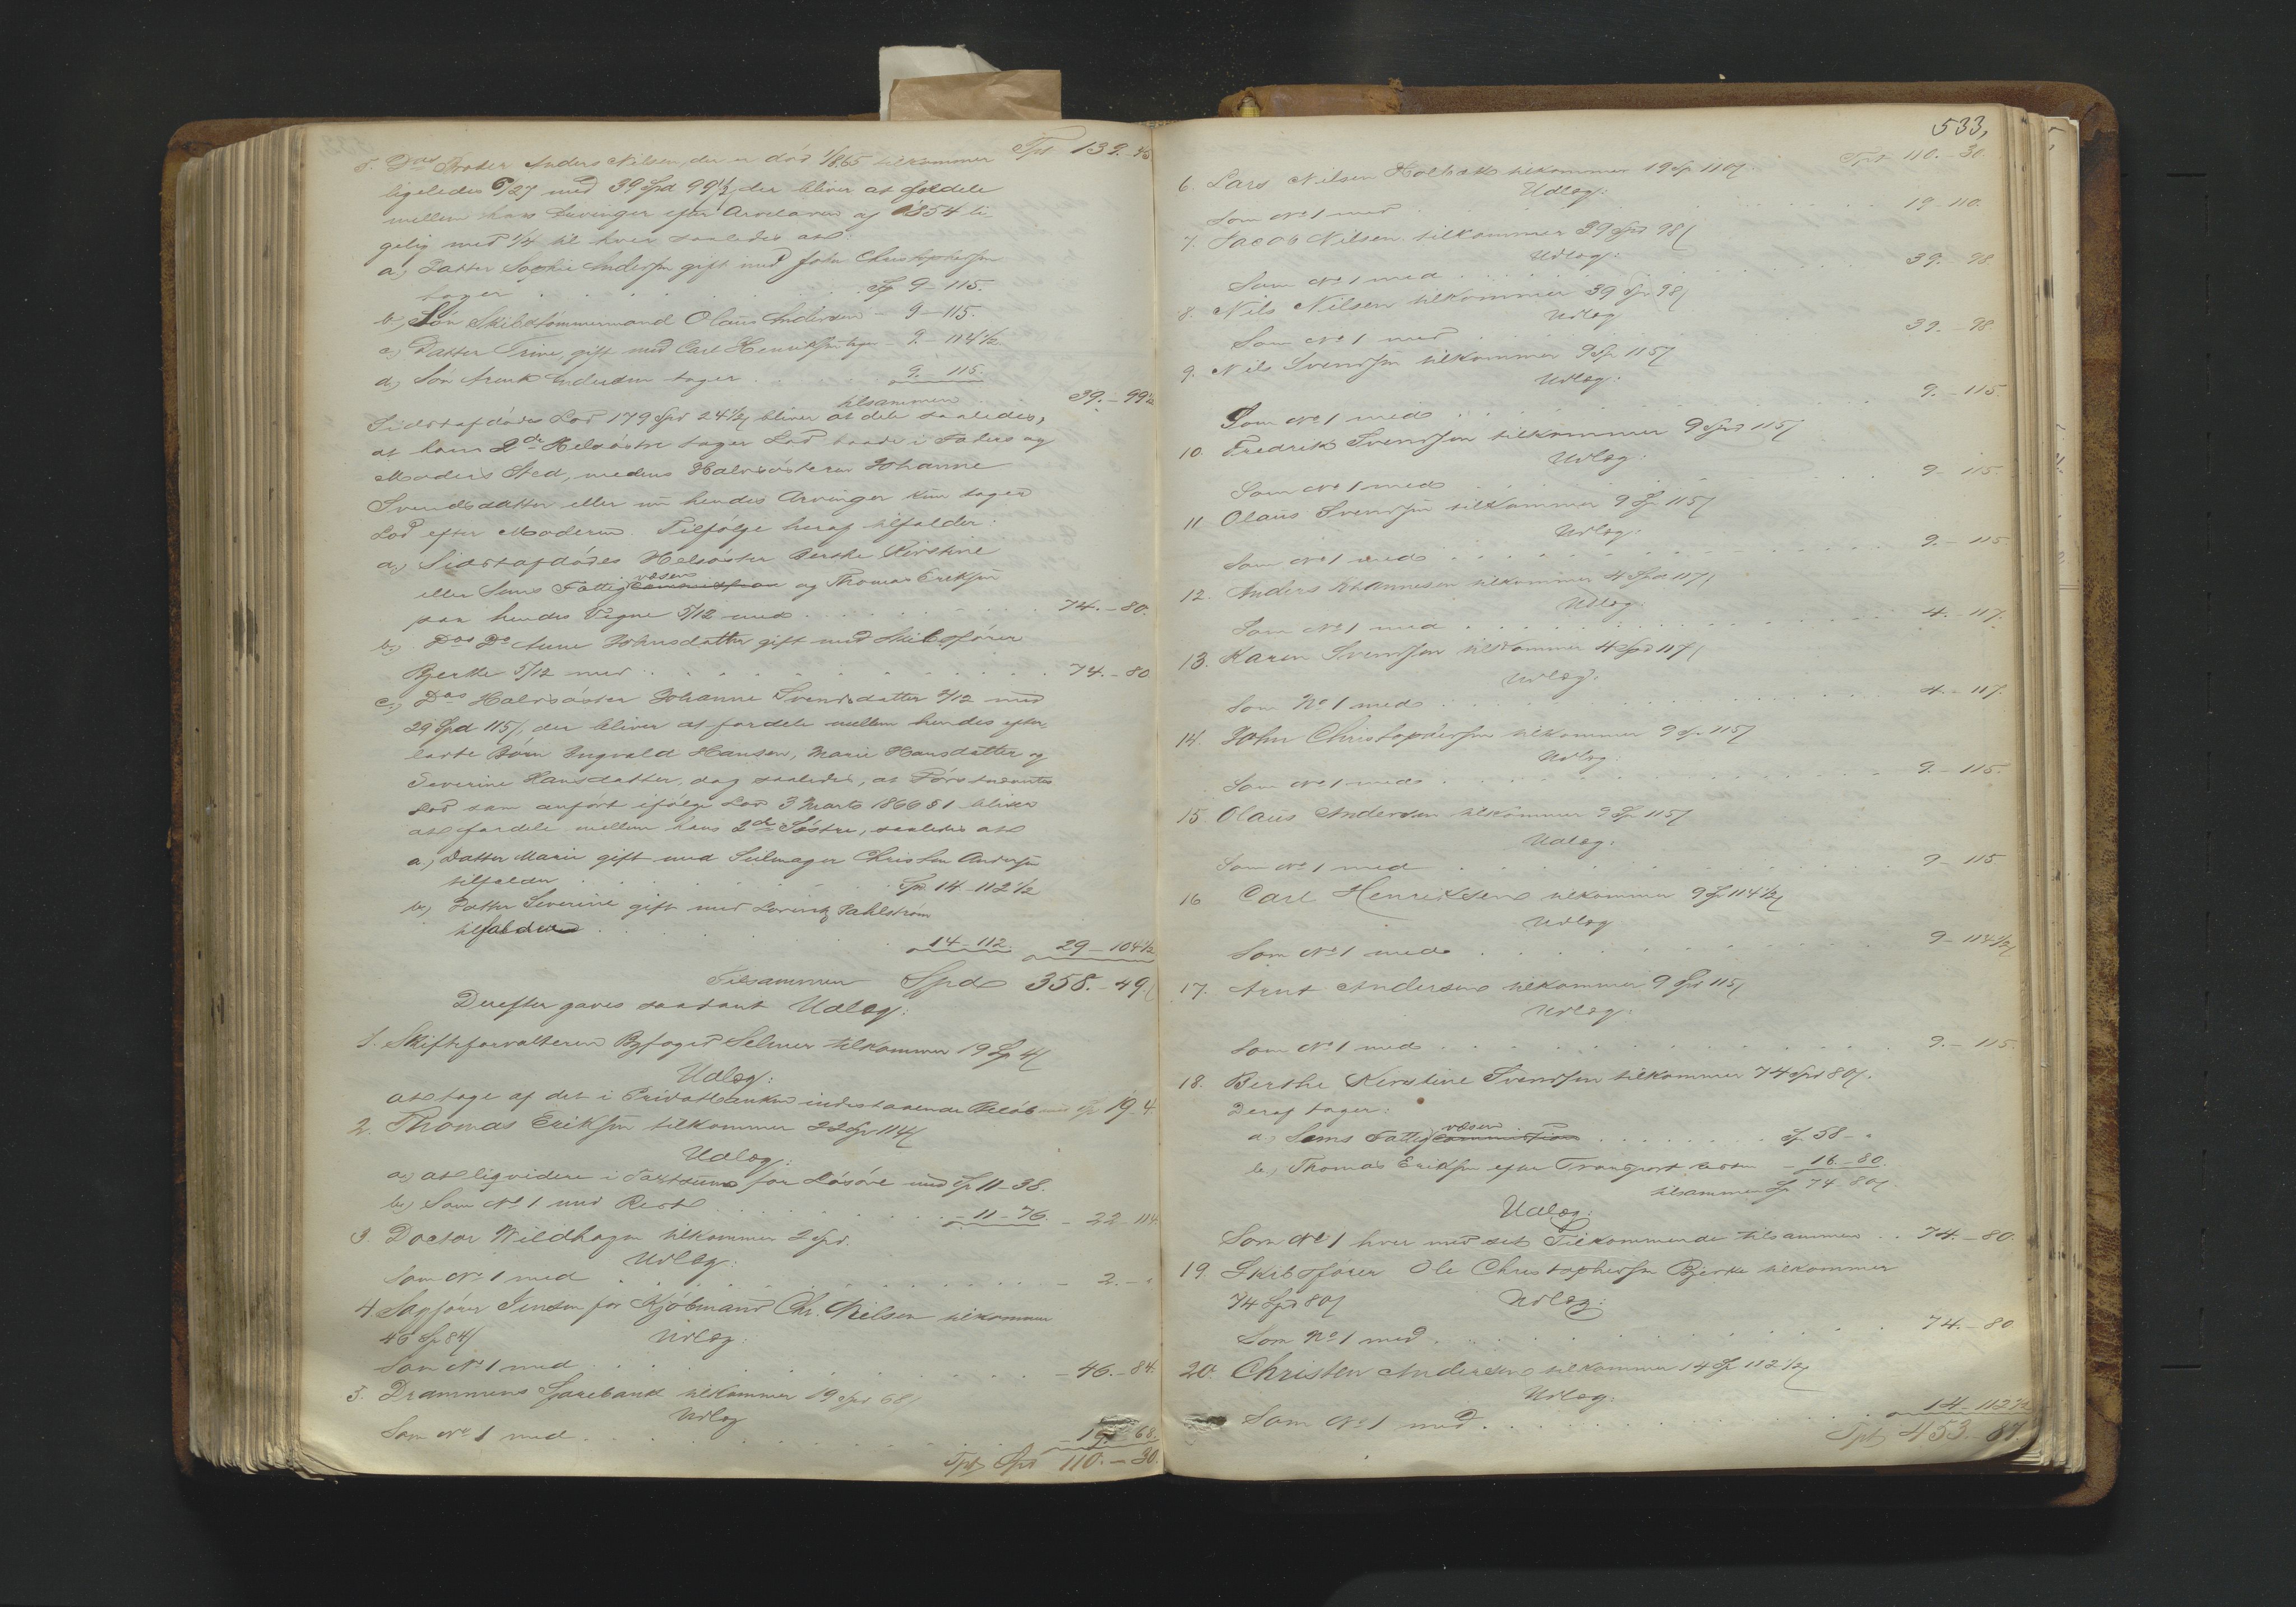 Tpt 139.-45
5. Ds Broder Anders Nilsen, der er död 1/865 tilkommer
ligeledes 6/27 med 39 Spd 99 1/2 der bliver at fordele
mellem hans Livsarvinger efter Arveloven af 1854 li-
gelig med 1/4 til hver saaledes at:
a) Datter Sophie Andersen gift med John Christophersen
tager . . . Sp 9-115.
b) Sön Skibstömmermand Olaus Andersen - 9-115.
c) Datter Trine, gift med Carl Henriksen tager - 9-114 1/2
d) Sön Arent Andersen tager . . . 9-115.
tilsammen . . 39.-99 1/2
Sidstafdödes Lod 179 Spd 24 1/2 bliver at dele saaledes,
at hans 2de Helsöstre tager Lod baade i Faders og
Moders Sted, medens Halvsösteren Johanne
Svendsdatter eller nu hendes Arvinger kun tager
Lod efter Moderen. Tilfölge heraf tilfalder:
a) Sidstafdödes Helsöster Berthe Kirstine
eller Lems Fattigvæsen og Thomas Eriksen
paa hendes Vegne 5/12 med . . . 74.-80.
b) Ds Do Anne Johnsdatter gift med Skibsförer
Bjerke 5/12 med . . . 74.-80
c) Ds Halvsöster Johanne Svendsdatter 2/12 med
29 Spd 115/, der bliver at fordele mellem hendes efter-
ladte Börn Ingvald Hansen, Marie Hansdatter og
Severine Hansdatter, dog saaledes, at Förstnævntes
Lod som anfört ifölge Lov 3 Marts 1866 § 1 bliver
at fordele mellem hans 2de Söstre, saaledes at
a) Datter Marie gift med Seilmager Christen Andersen
tilfalder . . . Spd 14-112 1/2
b) Datter Severine gift med Lorentz Dahlström
tilfalder . . . 14-112. 29-104 1/2
Tilsammen Spd 358.-49/
Derefter gaves saadant Udlæg:
1. Skifteforvalteren Byfoged Selmer tilkommer 19 Sp 4/
Udlæg:
at tage af det i Privatbanken indestaaende Belöb med Sp 19-4.
2. Thomas Eriksen tilkommer 22 Sp 114/
Udlæg:
a) at liqvidere i Fortsum for Lösöre med Sp 11-38.
b) Som No 1 med Rest . . . -11-76. - 22-114
3. Doctor Wildhagen tilkommer 2 Spd.
Udlæg:
Som No 1 med . . . - 2.-"
4. Sagförer Jensen for Kjöbmand Chr. Nielsen tilkommer
46 Sp 84/ Udlæg:
Som No 1 med . . . - 46.-84.
5. Drammens Sparebank tilkommer 19 Spd 68/
Udlæg
Som No 1 med . . . 19-68.
Tpt Spd 110.-30.
533,
Tpt 110.-30
6. Lars Nilsen Holbæk tilkommer 19 Sp 110/.
Udlæg:
Som No 1 med . . . 19-110.
7. Jacob Nilsen tilkommer 39 Spd 98/
Udlæg:
Som No 1 med . . . 39.-98.
8. Nils Nilsen tilkommer 39 Sp 98/
Udlæg
Som No 1 med . . . 39.-98
9. Nils Svendsen tilkommer 9 Sp 115/
Udlæg:
Som No 1 med . . . 9.-115.
10. Fredrik Svendsen tilkommer 9 Spd 115/
Udlæg:
Som No 1 med . . . 9-115.
11 Olaus Svendsen tilkommer 9 Sp 115/
Udlæg:
Som No 1 med . . . 9.-115
12. Anders Johannesen tilkommer 4 Spd 117/
Udlæg:
Som No 1 med . . . 4.-117.
13. Karen Svendsen tilkommer 4 Spd 117/
Udlæg:
Som No 1 med . . . 4-117.
14. John Christophersen tilkommer 9 Sp 115/
Udlæg:
Som No 1 med . . . 9.-115.
15. Olaus Andersen tilkommer 9 Sp 115/
Udlæg:
Som No 1 med . . . 9-115
16 Carl Henriksen tilkommer 9 Sp 114 1/2/
Udlæg
Som No 1 med . . . 9-114 1/2/
17. Arnt Andersen tilkommer 9 Spd 115/
Udlæg:
Som No 1 med . . . 9.-115.
18. Berthe Kirstine Svendsen tilkommer 74 Spd 80/.
Deraf tager:
a) Lems Fattigvæsen . . . Sp 58-"
b) Thomas Eriksen efter Transport Resten - 16.-80.
tilsammen Sp 74-80/.
Udlæg:
Som No 1 hver med det Tilkommende tilsammen . . 74.-80.
19. Skibsförer Ole Christophersen Bjerke tilkommer
74 Spd 80/ Udlæg:
Som No 1 med . . . 74.-80
20. Christen Andersen tilkommer 14 Sp 112 1/2/
Udlæg:
Som No 1 med . . . 14-112 1/2
Tpt 453-87.